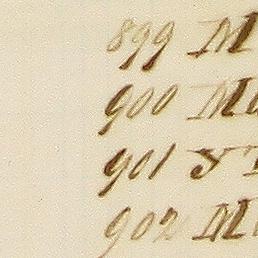 899 M
900 Ma
901 Y
902 Ma